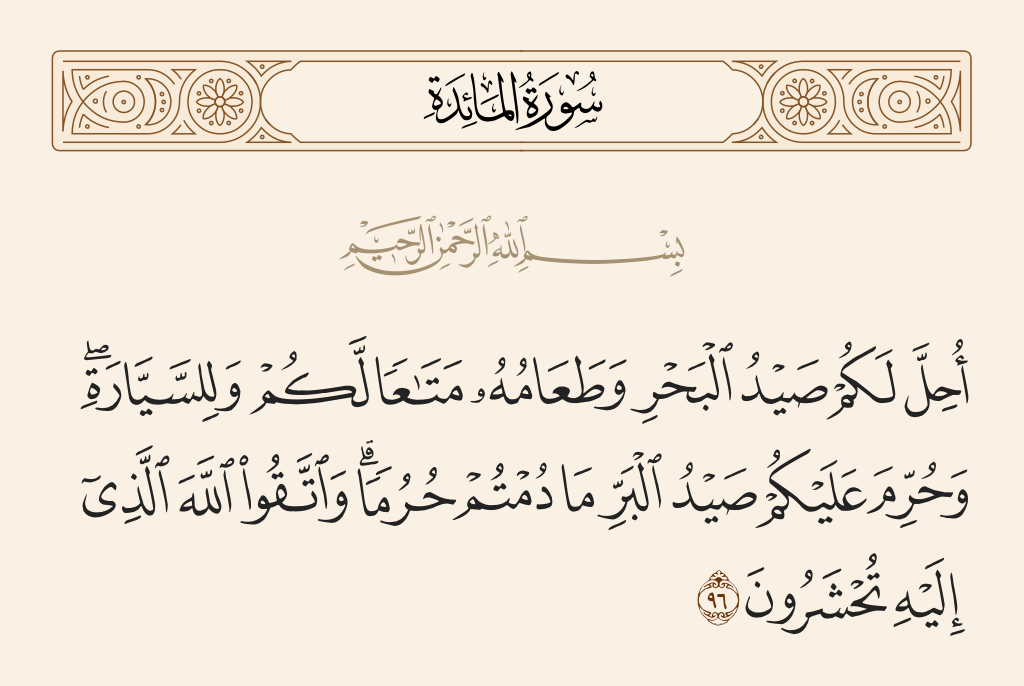 سُورَةُ المَائِدَةِ
بِسْمِ ٱللَّهِ ٱلرَّحْمَٰنِ ٱلرَّحِيمِ
أُحِلَّ لَكُمْ صَيْدُ ٱلْبَحْرِ وَطَعَامُهُۥ مَتَـٰعًا لَّكُمْ وَلِلسَّيَّارَةِ ۖ
وَحُرِّمَ عَلَيْكُمْ صَيْدُ ٱلْبَرِّ مَا دُمْتُمْ حُرُمًا ۗ وَٱتَّقُوا۟ ٱللَّهَ ٱلَّذِىٓ
إِلَيْهِ تُحْشَرُونَ ٩٦